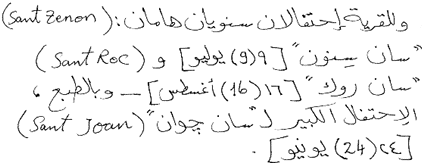 وللقرية إحتفالان سنويان هامان: (Sant Zenon)
"سان سِنون" [٩(9) يوليو] و (Sant Roc)
"سان روك" [١٦(16) أغسطس] – وبالطبع،
الاحتفال الكبير لـ "سان چوان" (Sant Joan)
[٢٤(24) يونيو].